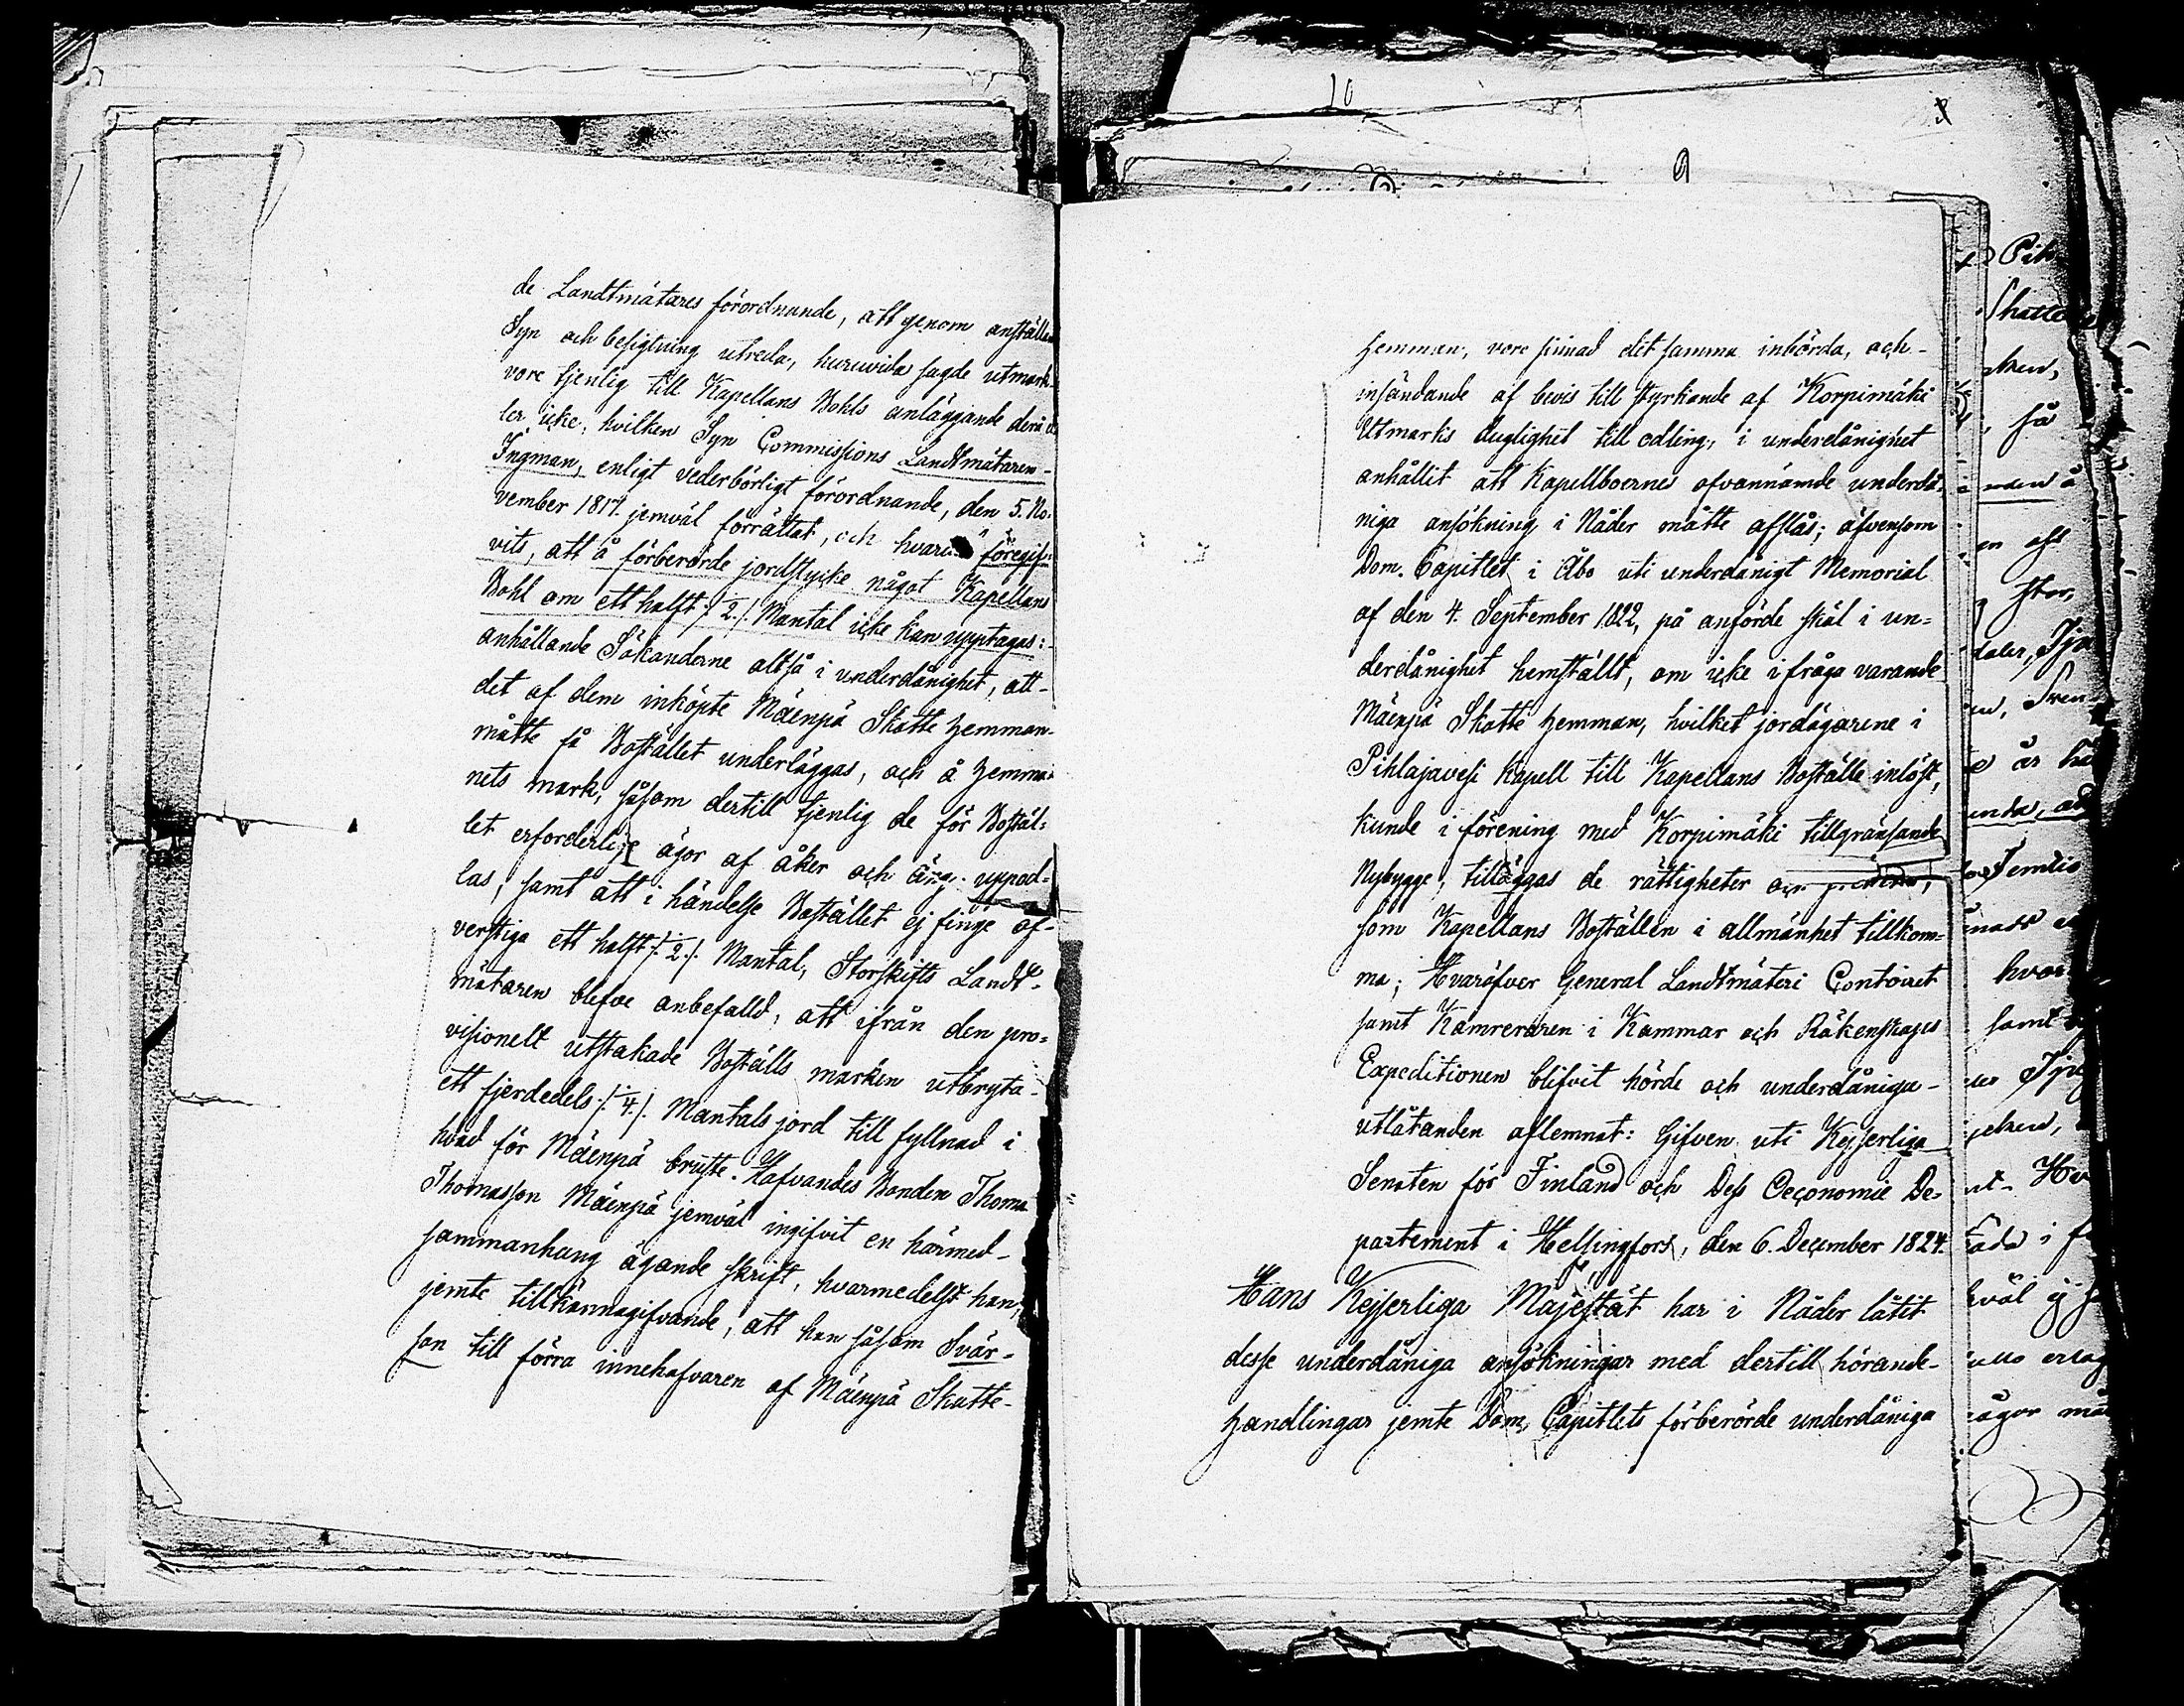 de Landtmätares förordnande, att genom anställan
Syn och besigtning utreda, huruvida sagde utmark
vore tjenlig till Kapellans Bohls anläggande derå el
ler icke, hvilken Syn Commissions Landtmätaren
Ingman, enligt vederbörligt förordnande, den 5. No-
vember 1817. jemväl förrättat, och hvarvid föregif-
vits, att å förberörde jordstycke något Kapellans
Bohl om ett halft /:1/2:/ Mantal icke kan upptagas:
anhållande Sökanderne altså i underdånighet, att
det af dem inköpte Mäenpä Skatte hemman
måtte få Bostället underläggas, och å hemma-
nets mark, såsom dertill tjenlig de för Bostäl-
let erforderlige ägor af åker och äng uppod-
las, samt att i händelse Bostället ej finge öf-
verstiga ett halft /:1/2:/ Mantal, Storskifts Landt-
mätaren blefve anbefalld, att ifrån den pro-
visionelt utstakade Boställs marken utbryta
ett fjerdedels /:1/4:/ Mantals jord till fyllnad i
hvad för Mäenpä bruste. Hafvandes Bonden Thomas
Thomasson Mäenpä jemväl ingifvit en härmed
sammanhang ägande skrift, hvarmedelst han,
jemte tillkännagifvande, att han såsom Svär-
son till förra innehafvaren af Mäenpä Skatte
10
9
hemman, vore sinnad det samma inbörda, och
insändande af bevis till styrkande af Korpimäki
Utmarks duglighet till odling, i underdånighet
anhållit att Kapellboernes ofvannämde underdå-
niga ansökning i Nåder måtte afslås; äfvensom
Dom. Capitlet i Åbo uti underdånigt Memorial
af den 4. September 1822, på anförde skäl i un-
derdånighet hemställt, om icke i fråga varande
Mäenpä Skatte hemman, hvilket jordägarene i
Pihlajavesi Kapell till Kapellans Boställe inlöst,
kunde i förening med Korpimäki tillgränsande
Nybygge, tilläggas de rättigheter och
som Kapellans Boställen i allmänhet tillkom-
ma; Hvaröfver General Landtmäteri Contoiret
samt Kamreraren i Kammar och Räkenskaps
Expeditionen blifvit hörde och underdåniga
utlåtanden aflemnat: Gifven uti Kejserliga
Senaten för Finland och Dess Oeconomie De-
partement i Helsingfors, den 6. December 1824.
Hans Kejserliga Majestät har i Nåder låtit
desse underdåniga ansökningar med dertill hörande
handlingar jemte Dom Capitlets förberörde underdåniga